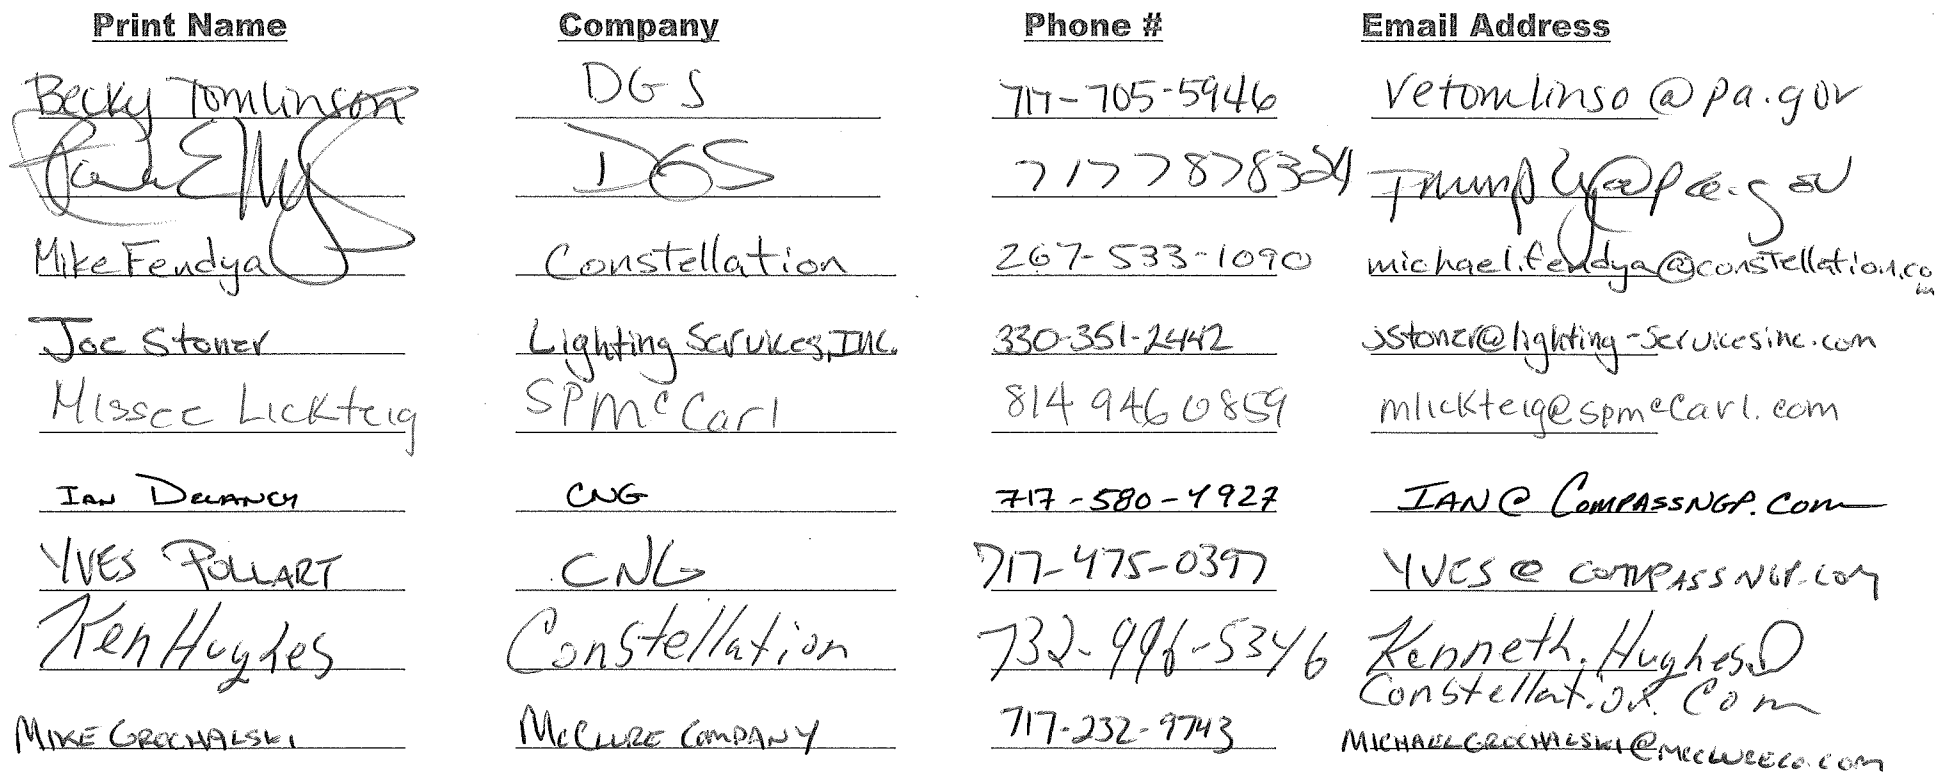 Print Name Company Phone # Email Address
Becky Tomlinson DGS 717-705-5946 vetomlinso@pa.gov
DGS 7177878324 @pa.gov
Mike Fendya Constellation 267-533-1090 michael.fendya@constellation.com
Joe Stoner Lighting Services, INC. 330-351-2442 jstoner@lighting-servicesinc.com
Missee Lickteig SPMcCarl 814 946 0859 mlickteig@spmcCarl.com
IAN DELANCY CNG 717-580-4927 IAN@COMPASSNGP.COM
YVES POLLART CNG 717-475-0397 YVES@COMPASSNGP.COM
Ken Hughes Constellation 732-996-5346 Kenneth.Hughes@
Constellation.Com
MIKE GROCHALSKI MCCLURE COMPANY 717-232-9743 MICHAELGROCHALSKI@MCCLURECO.COM